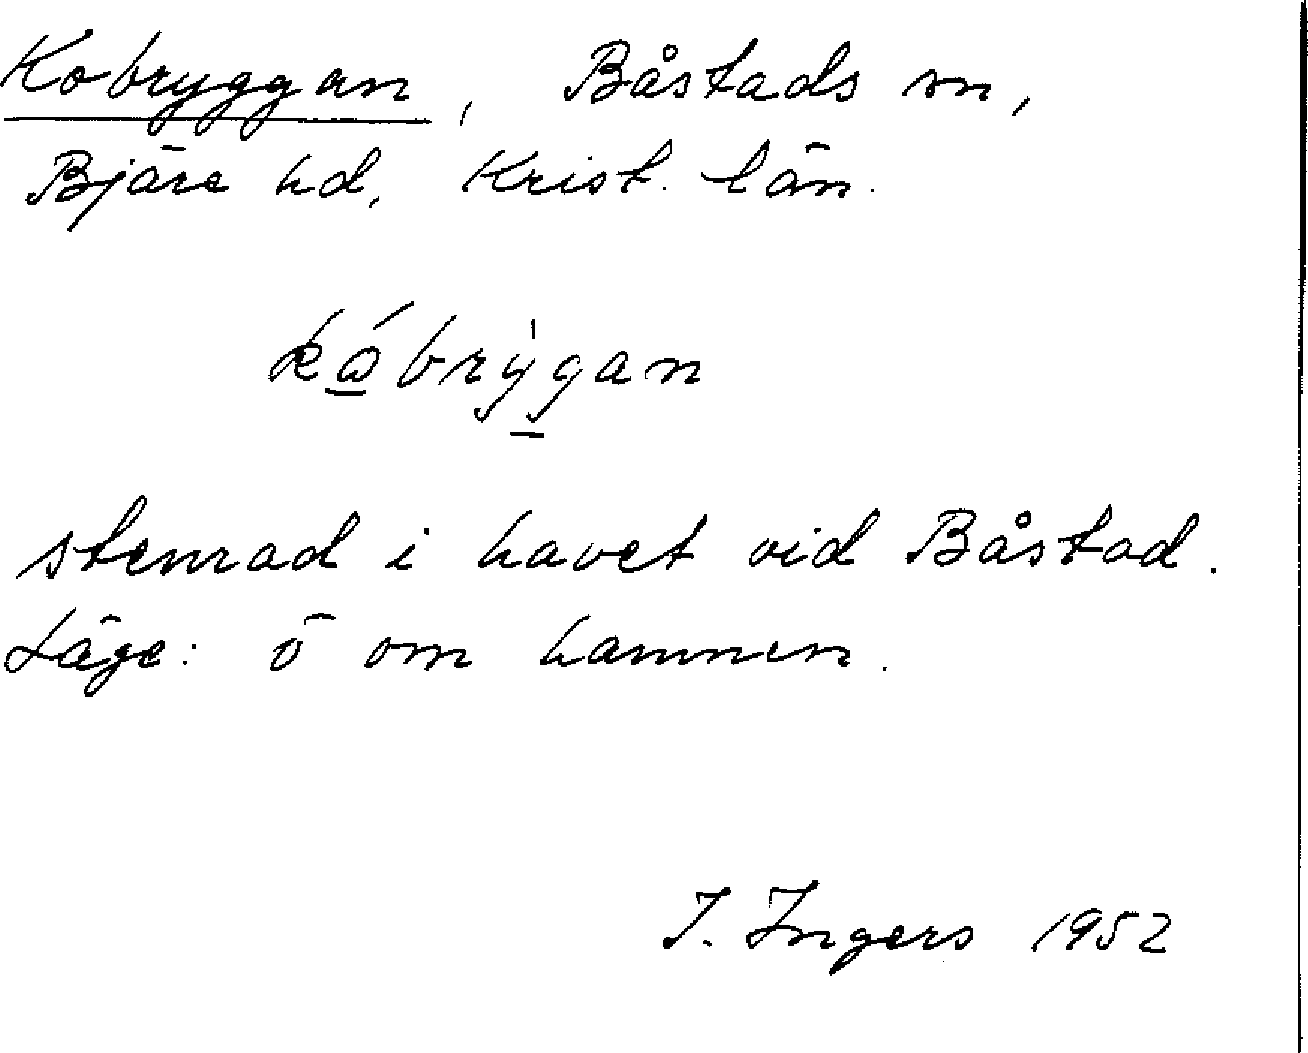 Kobryggan, Båstads sn,
Bjäre hd, Krist. län.
stenrad i havet vid Båstad.
Läge: Ö om hamnen.
I. Ingers 1952